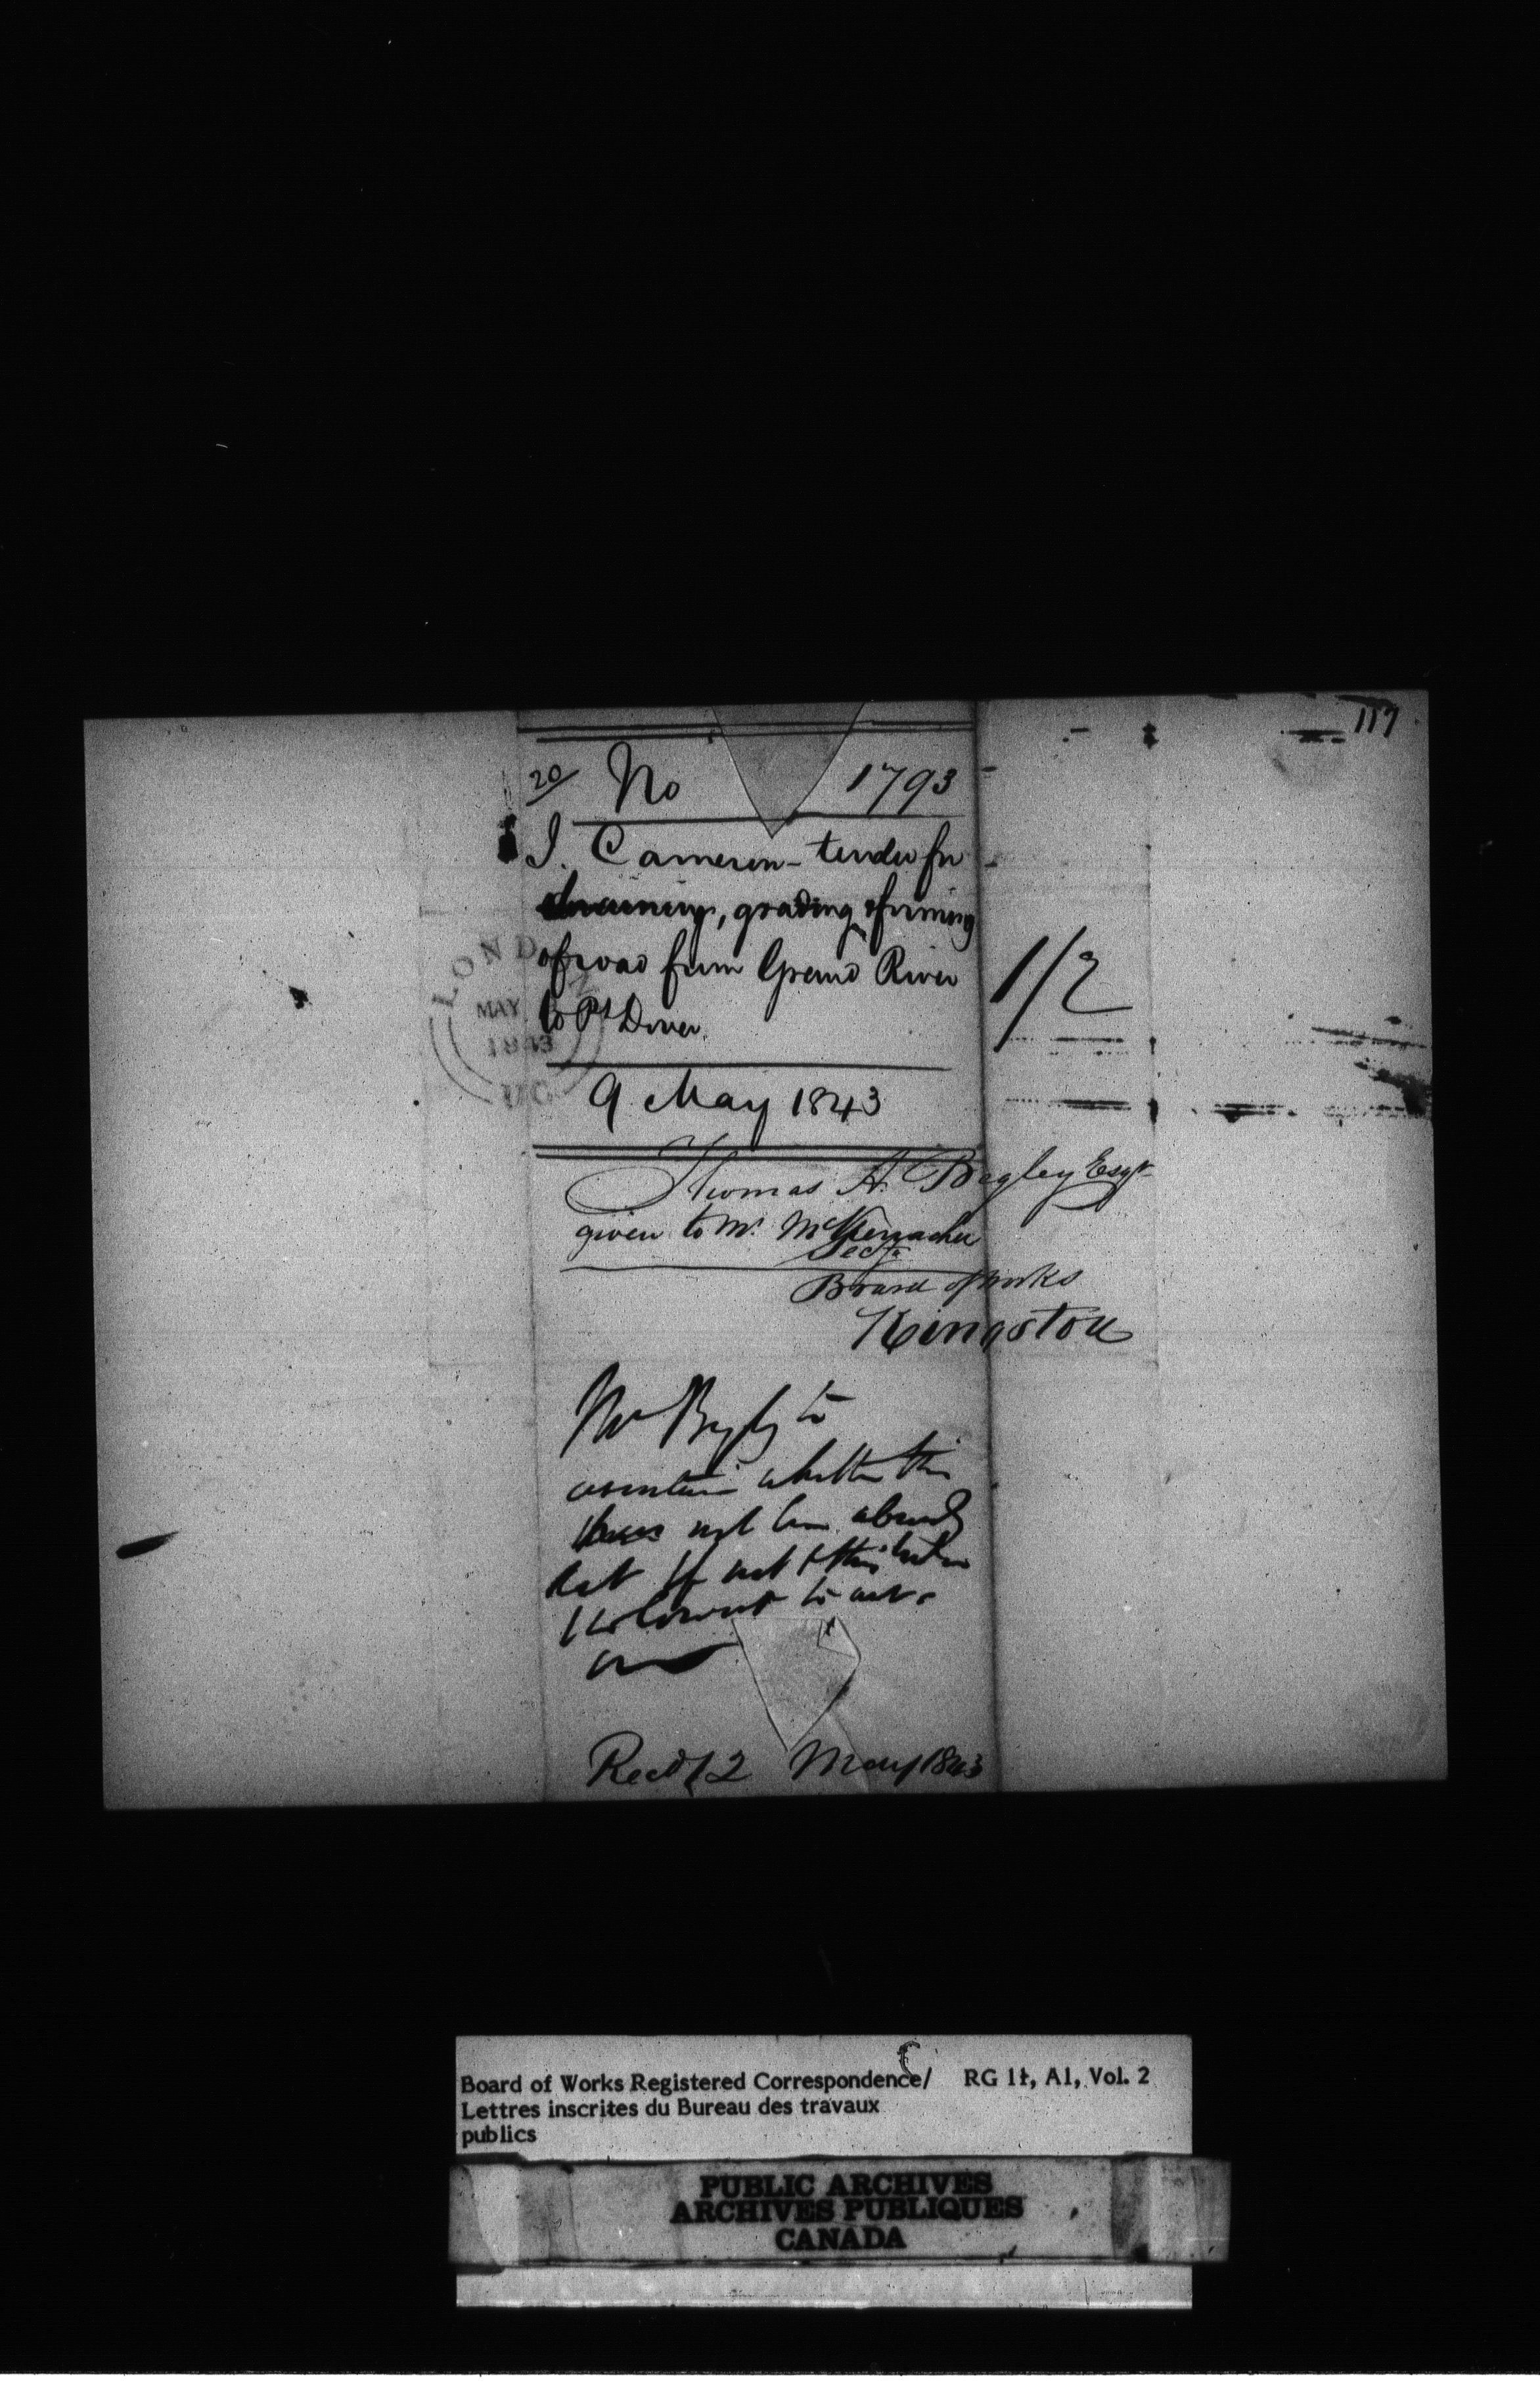 117
20/ No 1793
J. Cameron - tender for
draining, grading & forming
of road from Grand River
to Pt Dover.
9 May 1843
LONDON
MAY
1843
U.C.
1/2
Thomas A. Begley Esqr
given to Mr. McKerracher
Secy
Board of Works
Kingston
Mr Begly to
ascertain whether this
has not been already
let If not & this
lowest to
Recd 12 May 1843
Board of Works Registered Correspondence/ RG 11, A1, Vol. 2
Lettres inscrites du Bureau des travaux
publics
PUBLIC ARCHIVES
ARCHIVES PUBLIQUES
CANADA